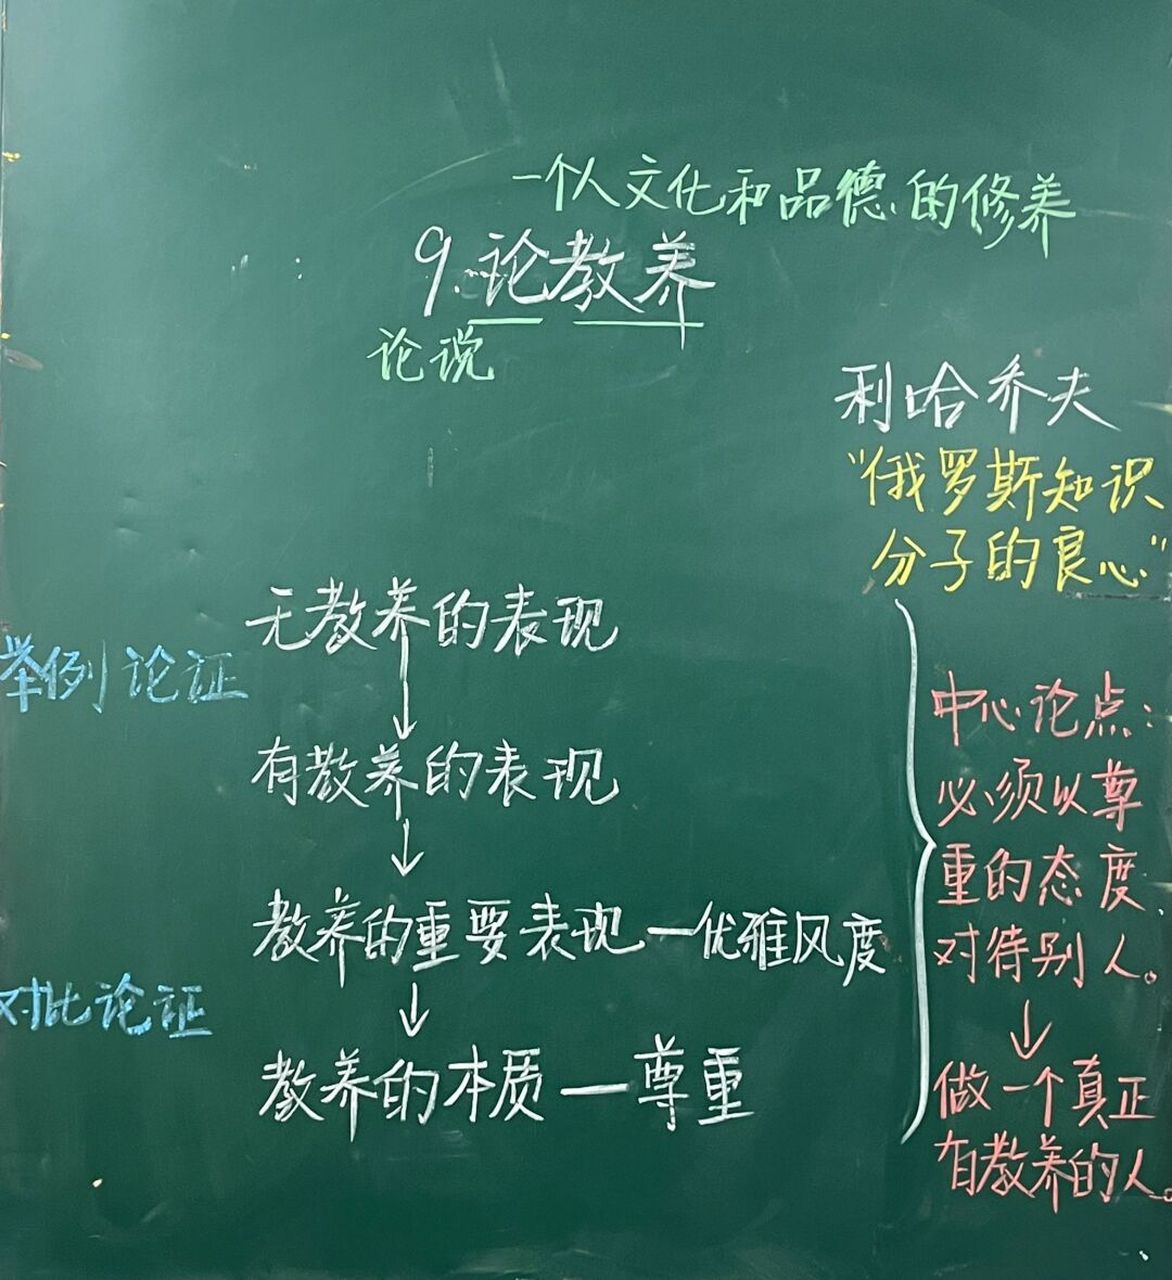 一个人文化和品德的修养
9.论教养
论说
利哈乔夫
"俄罗斯知识
分子的良心"
无教养的表现
举例论证
有教养的表现
教养的重要表现—优雅风度
对比论证
教养的本质—尊重
中心论点：
必须以尊
重的态度
对待别人。
做一个真正
有教养的人。